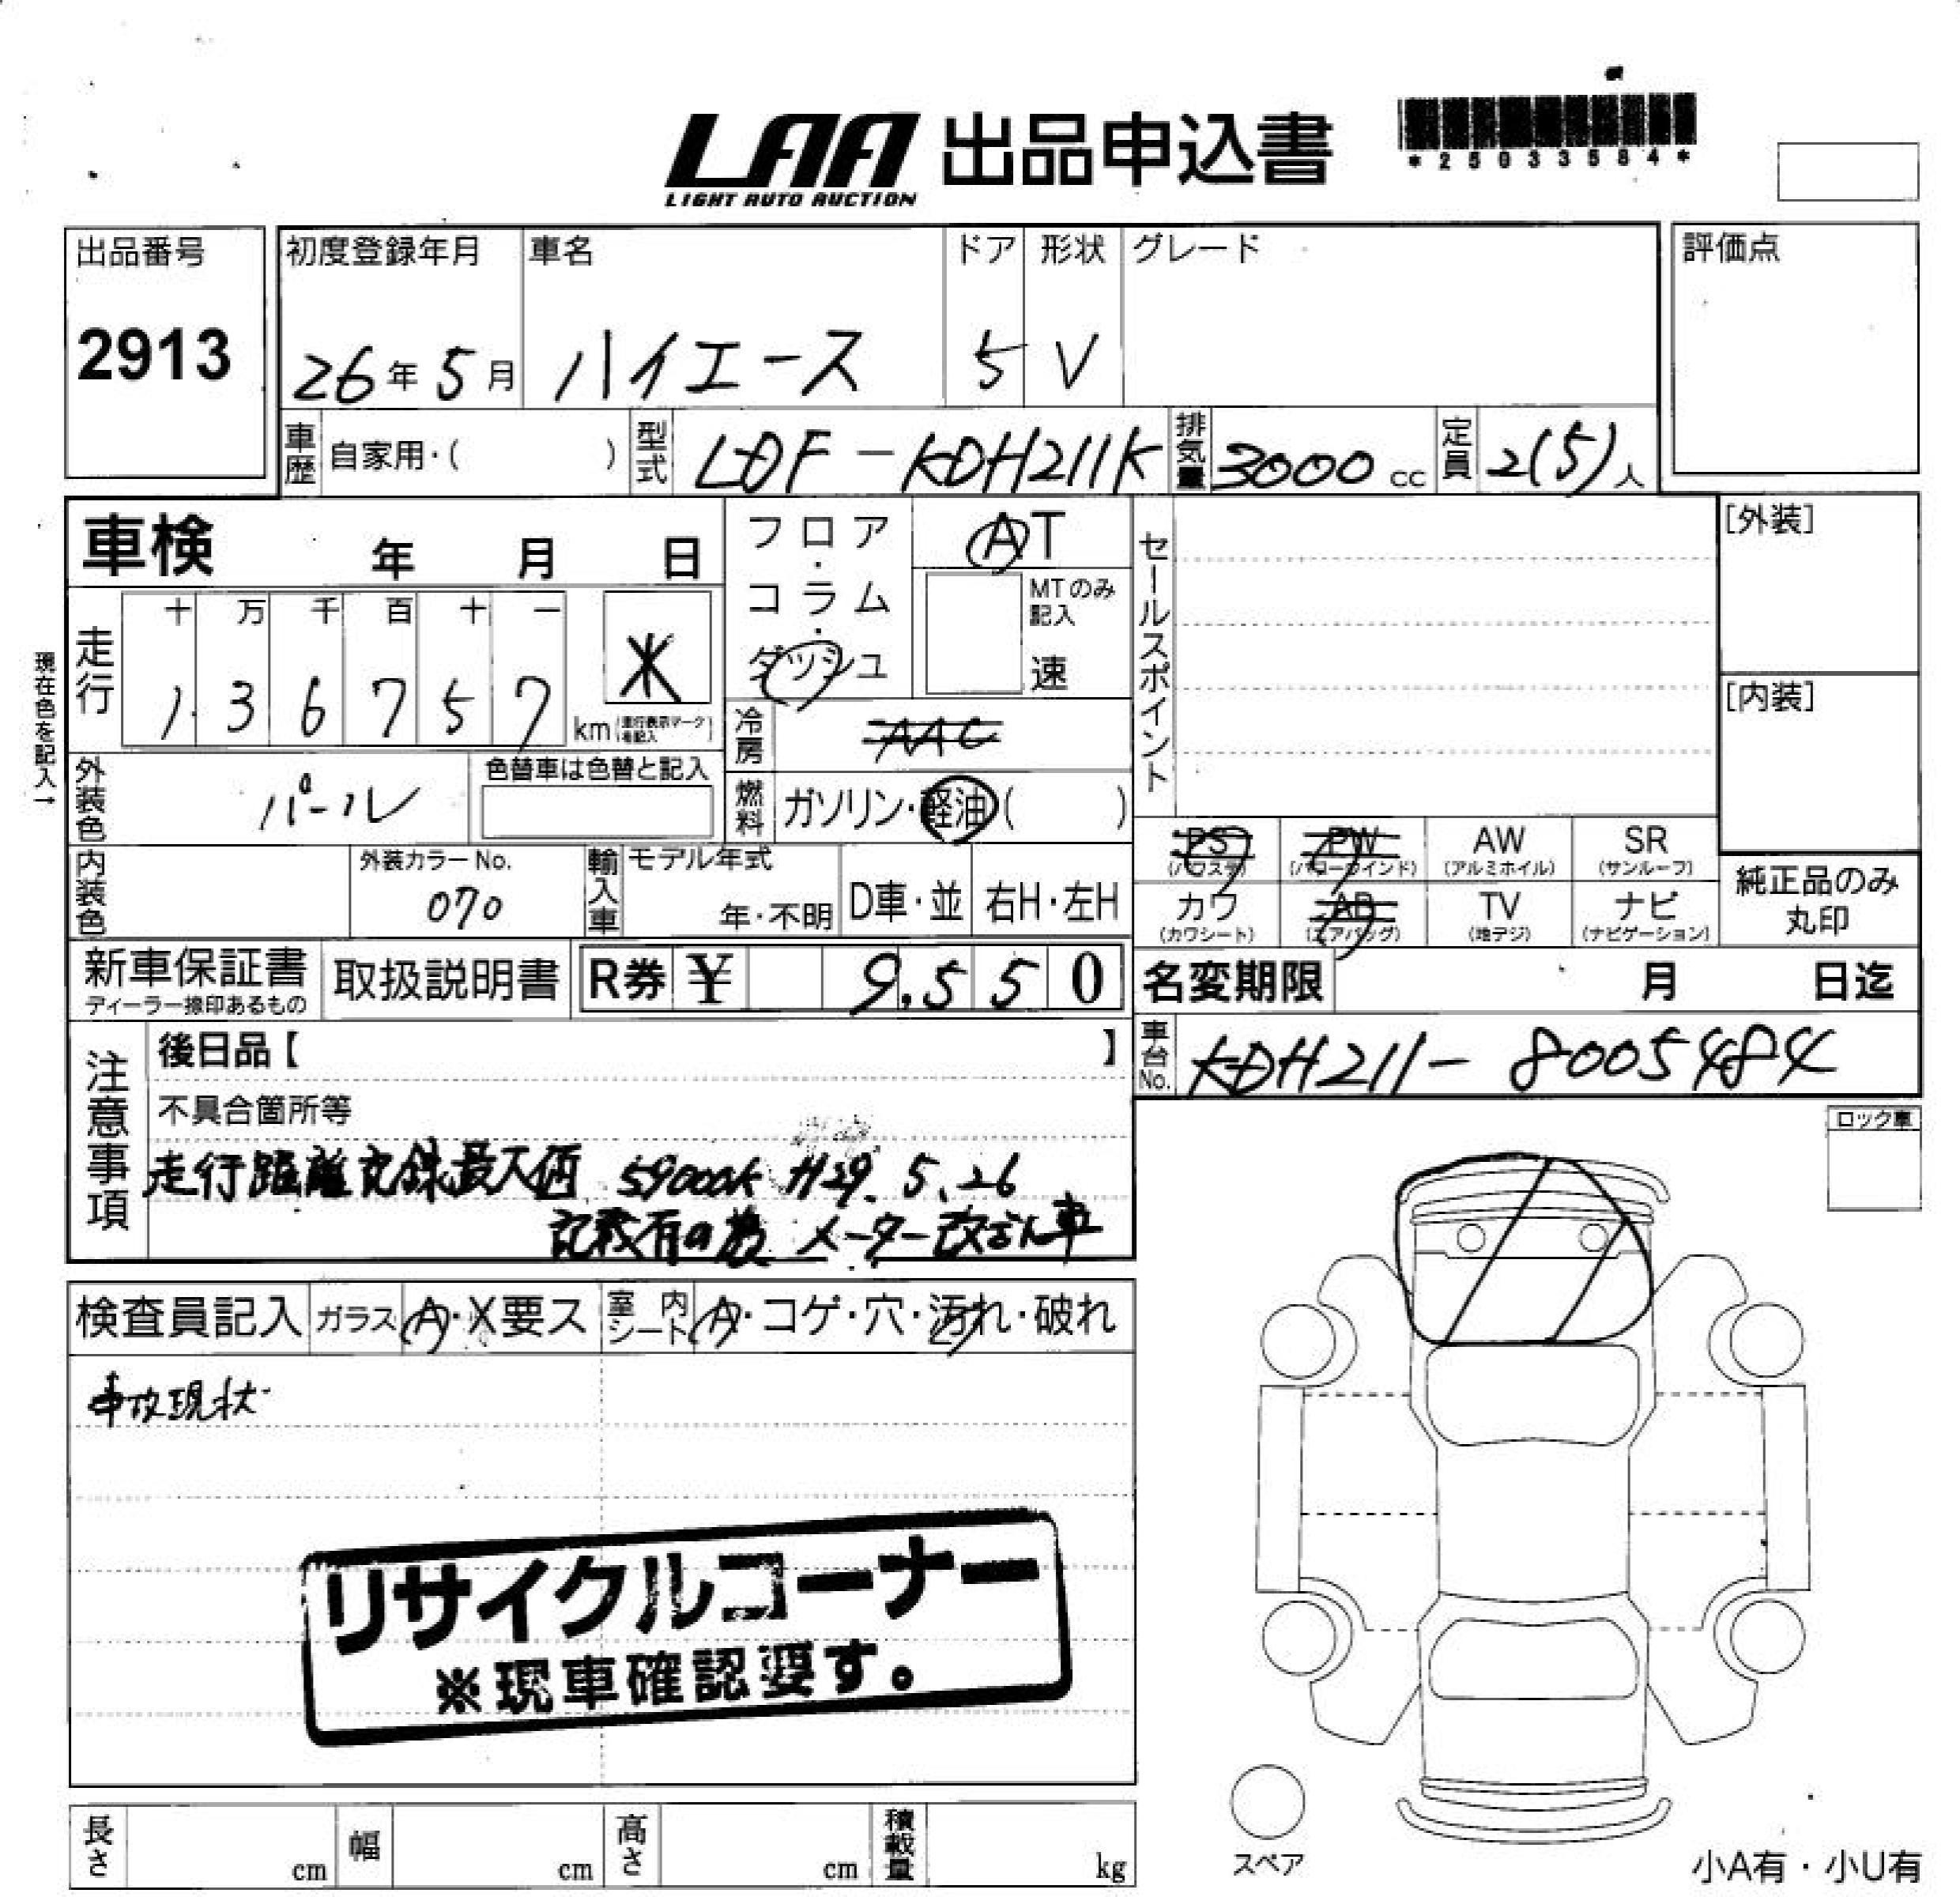 LAA 出品申込書
LIGHT AUTO AUCTION
*25033584*
出品番号 初度登録年月 車名 ドア 形状 グレード 評価点
2913 26年5月 ハイエース 5 V
車歴 自家用・( ) 型式 LDF-KDH211K 排気量 3000cc 定員 2(5)人
車検 年 月 日 フロア・コラム・ダッシュ AT セールスポイント [外装]
MTのみ記入 速
現在色を記入→
走行 十 万 千 百 十 一
1 3 6 7 5 7 km
[内装]
冷房 AAC
外装色 パール 色替車は色替と記入 燃料 ガソリン・軽油( )
PS (パワステ) PW (パワーウインド) AW (アルミホイル) SR (サンルーフ)
カワ (カワシート) AB (エアバッグ) TV (地デジ) ナビ (ナビゲーション) 純正品のみ丸印
内装色 外装カラーNo. 070 輸入車 モデル年式 年・不明 D車・並 右H・左H
新車保証書 ディーラー捺印あるもの 取扱説明書 R券 ¥ 9,550 名変期限 月 日迄
注意事項 後日品【 】 車台No. KDH211-8005484
不具合箇所等
走行距離記録最大値 59000k H29.5.26
記載有の為 メーター改ざん車
ロック車
検査員記入 ガラス A・X要ス 室内シート A・コゲ・穴・汚れ・破れ
事故現状
リサイクルコーナー
※現車確認要す。
長さ cm 幅 cm 高さ cm 積載量 kg
スペア
小A有・小U有